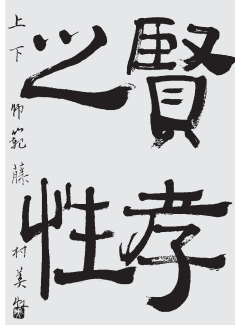 賢孝
之性
上下 師範 藤村美